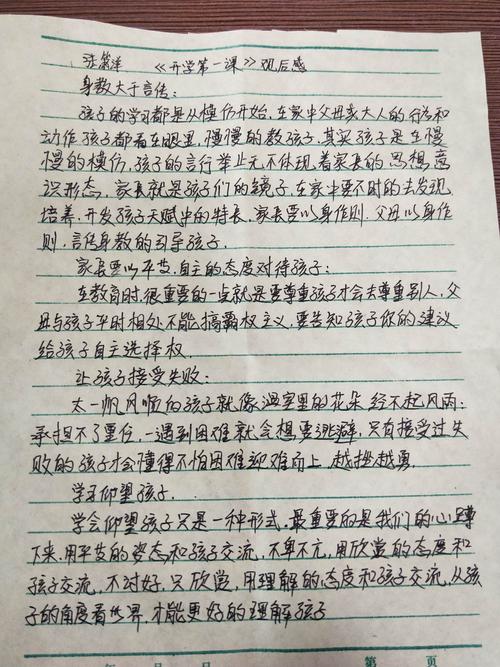 张 洋 《开学第一课》观后感
身教大于言传:
孩子的学习都是从模仿开始,在家中父母亲大人的行为和
动作,孩子都看在眼里,慢慢的教孩子,其实孩子是在慢
慢的模仿,孩子的言行举止无不体现着家长的思想,意
识形态,家长就是孩子们的镜子,在家中要不时的去发现,
培养,开发孩子天赋中的特长,家长要以身作则,父母以身作
则,言传身教的引导孩子.
家长要以平等,自主的态度对待孩子:
在教育时,很重要的一点就是要尊重孩子才会去尊重别人,父
母与孩子平时相处不能搞霸权主义,要告知孩子你的建议
给孩子自主选择权.
让孩子接受失败:
太一帆风顺的孩子就像温室里的花朵经不起风雨;
承担不了重任,一遇到困难就会想要逃避,只有接受过失
败的孩子才会懂得不怕困难迎难而上,越挫越勇.
学习仰望孩子.
学会仰望孩子只是一种形式,最重要的是我们的心蹲
下来,用平等的姿态和孩子交流,不卑不亢,用欣赏的态度和
孩子交流,不讨好,只欣赏,用理解的态度和孩子交流,从孩
子的角度看世界,才能更好的理解孩子
年 月 日 第 页